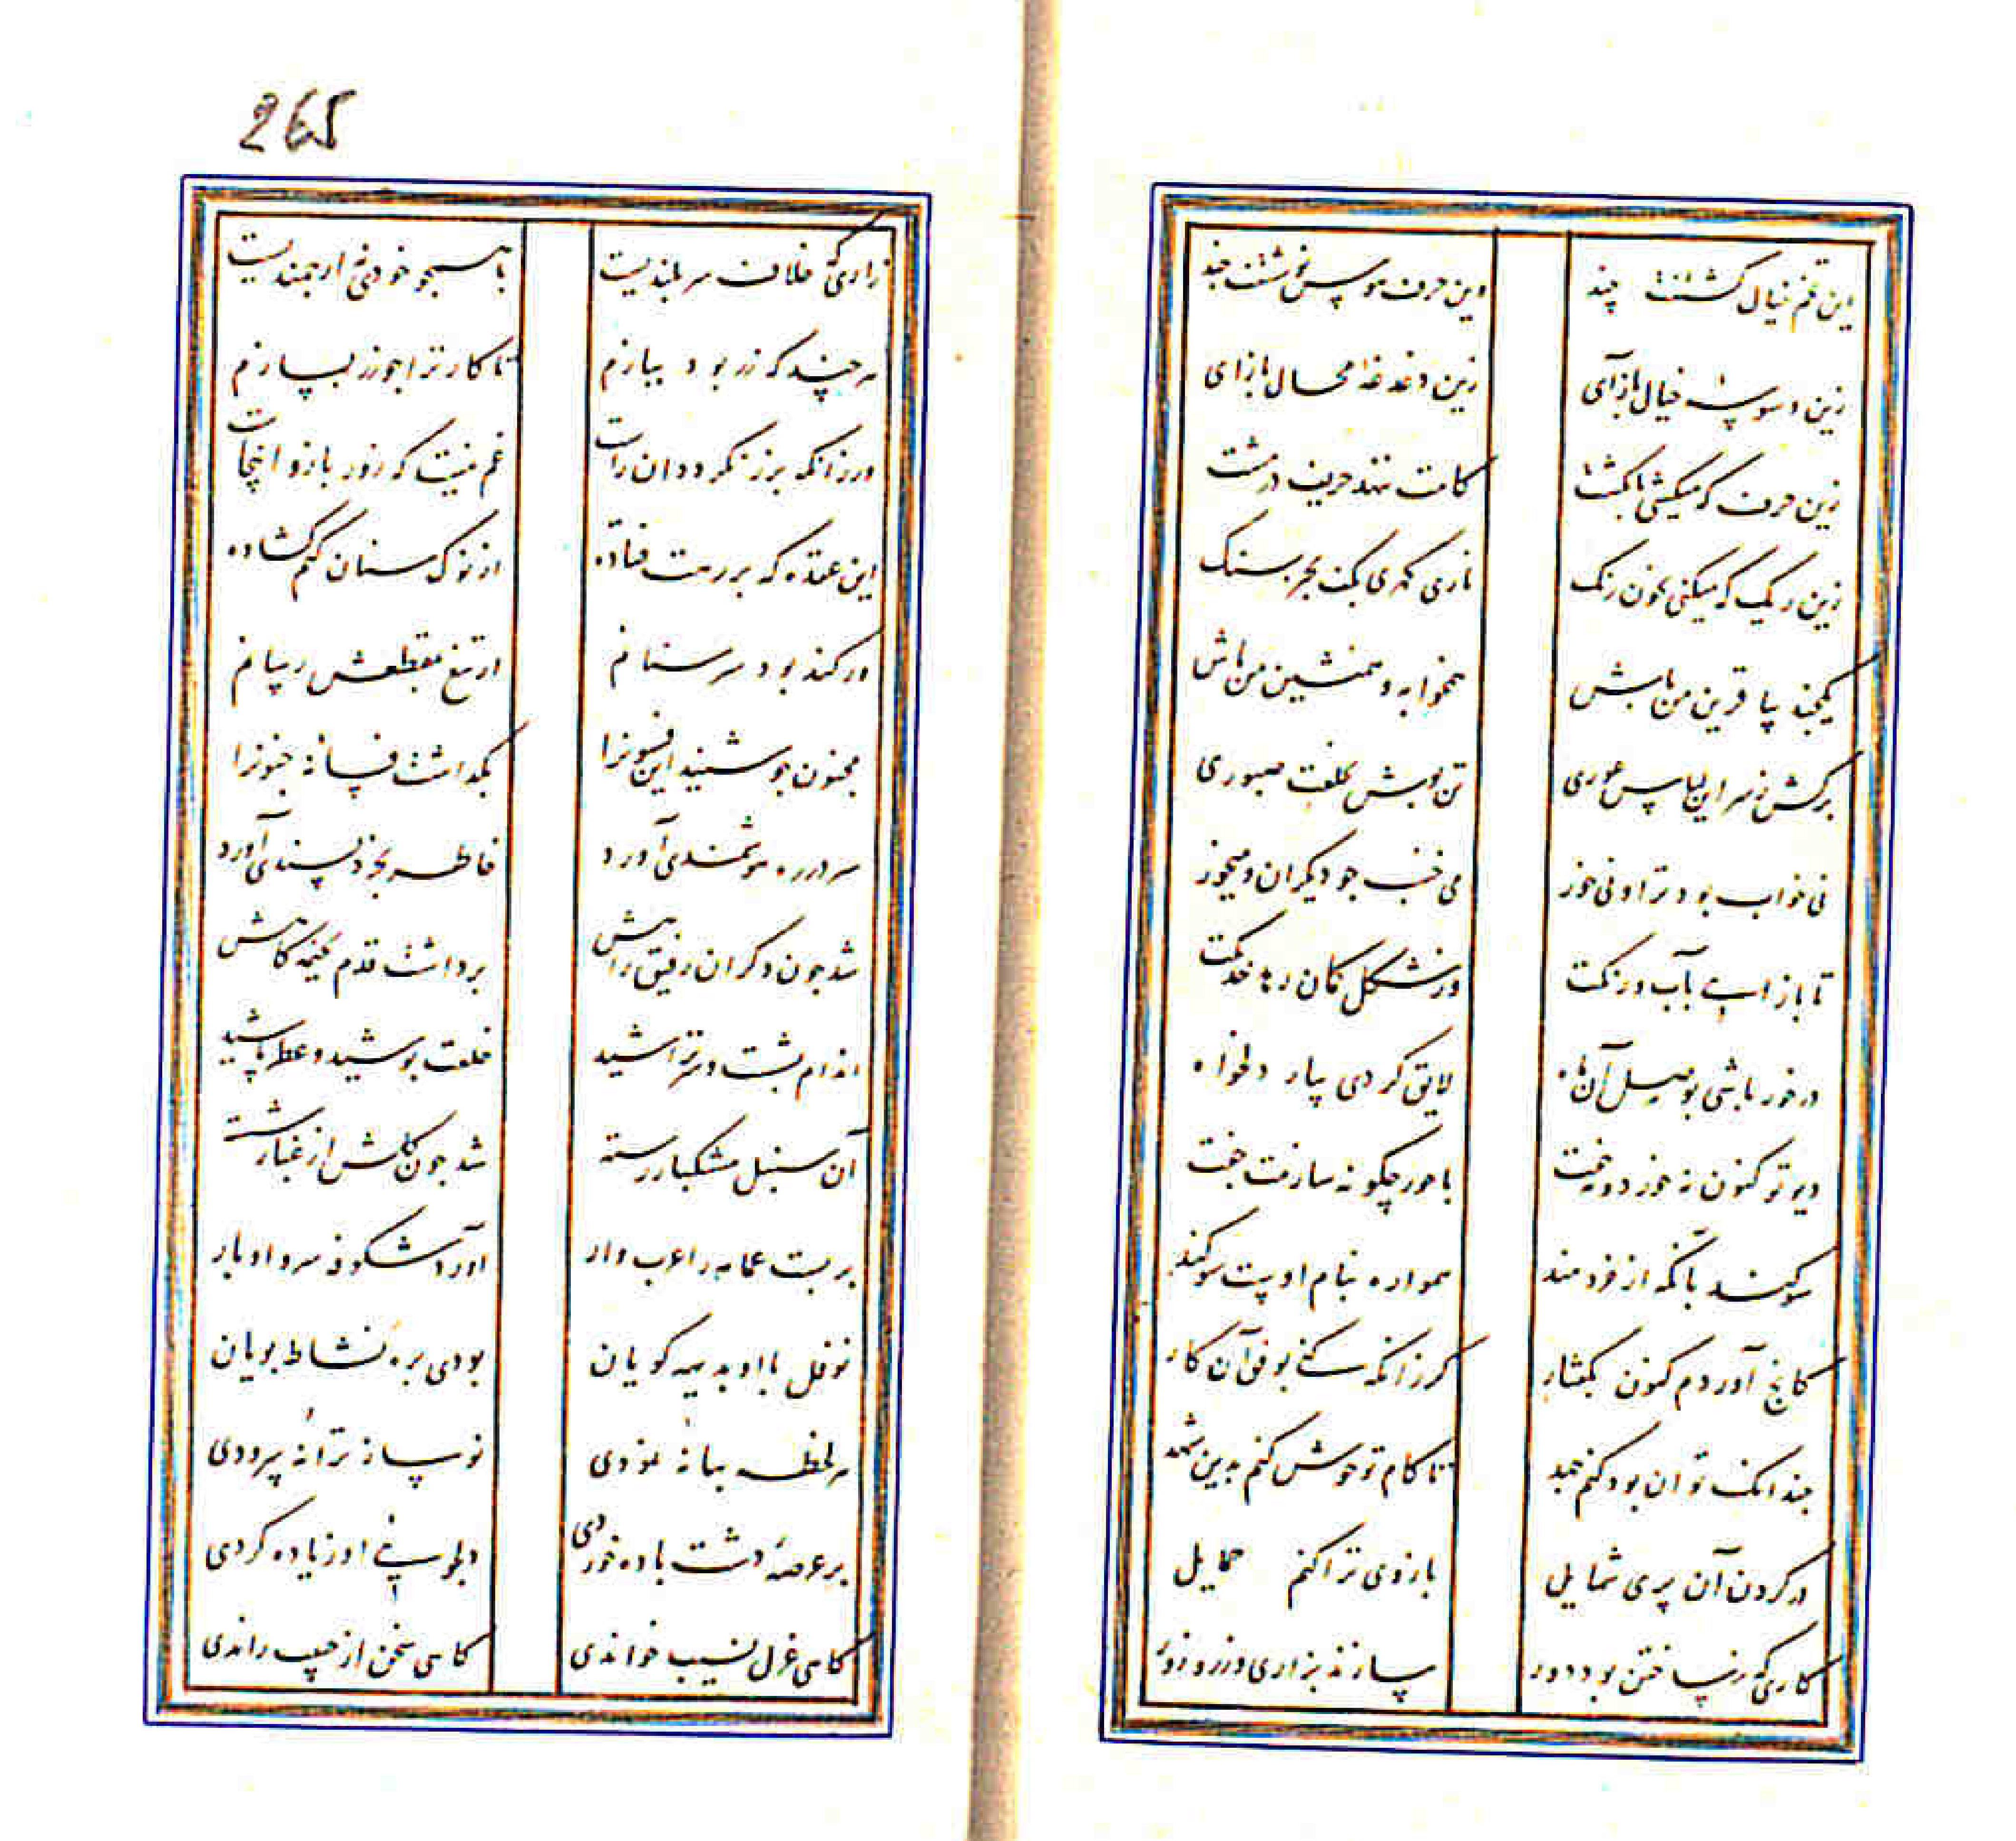 این تخم خیال کشتنت چند    وین حرف هوس نوشتنت چند
زین وسوسه خیال بازآی    زین دغدغهٔ محال بازای
زین حرف که میکشی بانکشت    کامت ننهد حریف در مشت
زین ریک که میکنی بخون رنک    ناری کهری بکف بجز سنک
یکچند بیا قرین من باش    همخوابه و همنشین من باش
برکش ز سر این لباس عوری    تن پوش بخلعت صبوری
نی خواب بود ترا و نی خور    می خسب جو دیکران و میخور
تا باز آید بآب و رنکت    وز شکل کمان رهد خدنکت
در خور باشی بوصل آن ماه    لایق کردی بیار دلخواه
دیو تو کنون نه خورد و نه خفت    با حور چکونه سازمت جفت
سوکند بآنکه از خردمند    همواره بنام اوست سوکند
کانچ آوردم کنون بکفتار    کر زانکه کنی بوفق آن کار
چندانک توان بود کنم جهد    تا کام تو خوش کنم بدین شهد
در کردن آن پری شمایل    بازوی ترا کنم حمایل
کاری کز ساختن بود دور    سازند بزاری و زر و زور
زاری که خلاف سربلندیست    با همجو خودی نه ارجمندیست
هر چند که زر بود ببازم    تا کار ترا جو زر بسازم
ور زانکه بزر نکردد آن راست    غم نیست که زور بازو اینجاست
این عقده که بر رهت فتاده    از نوک سنان کنم کشاده
ور کند بود سر سنانم    از تیغ بمقطعش رسانم
مجنون جو شنید این فسونرا    بکداشت فسانهٔ جنونرا
سر در ره هوشمندی آورد    خاطر بخردپسندی آورد
شد جون دکران رفیق راهش    برداشت قدم بخیمه کاهش
اندام بشست و سر تراشید    خلعت پوشید و عطر پاشید
آن سنبل مشکبار رسته    شد جون کلش از غبار شسته
بر بست عمامه را عرب وار    آورد شکوفه سرو او بار
نوفل با او بدیهه کویان    بودی بره نشاط پویان
هر لحظه بهانه نمودی    نو ساز ترانه سرودی
بر عرصهٔ دشت باده خوردی    دلجویی او زیاده کردی
کاهی غزل نسیب خواندی    کاهی سخن از حبیب راندی
265